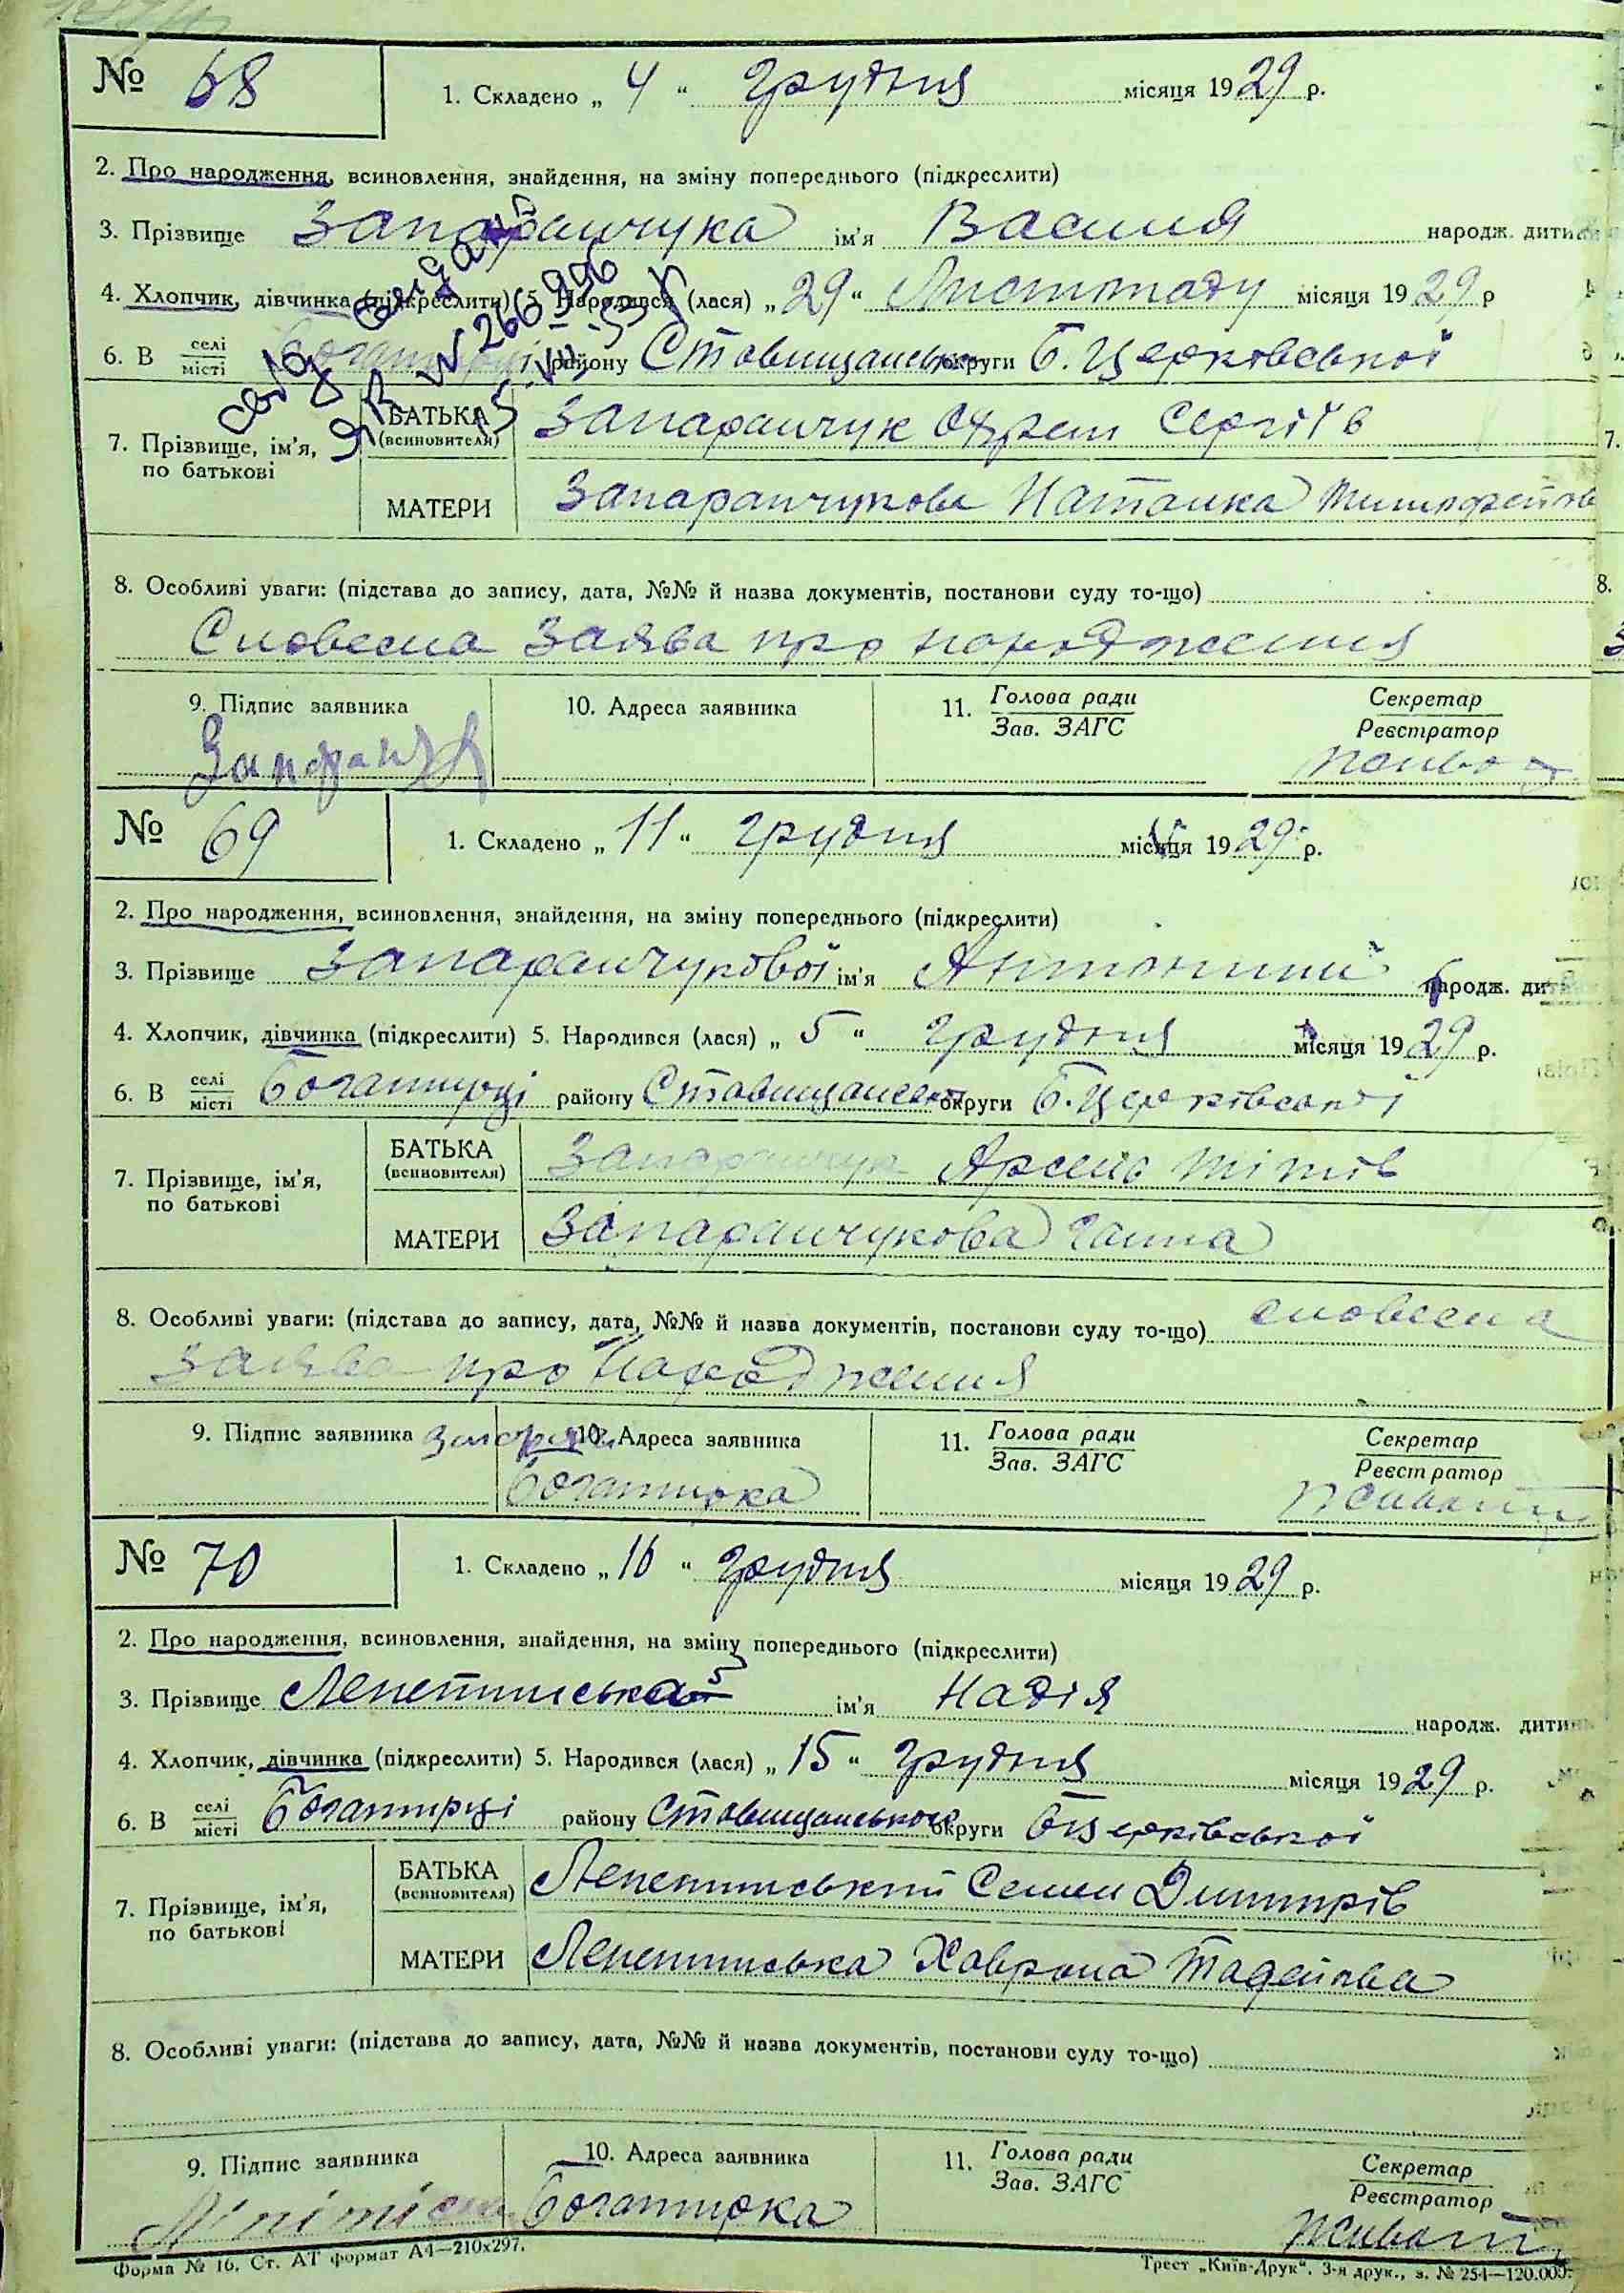 № 68
1. Складено „ 4 “ грудня місяця 1929 р.
2. Про народження, всиновлення, знайдення, на зміну попереднього (підкреслити)
3. Прізвище Запаранчука ім'я Василя народж. дитини
4. Хлопчик, дівчинка (підкреслити) 5. Народився (лася) „ 29 “ Листопаду місяця 1929 р
6. В селі місті Богатирці району Ставищанської округи Б. Церковської
7. Прізвище, ім'я, по батькові
БАТЬКА (всиновителя) Запаранчук Сергіїв
МАТЕРИ Запаранчукова Наталка
8. Особливі уваги: (підстава до запису, дата, №№ й назва документів, постанови суду то-що)
Словесна заява про народження
9. Підпис заявника 10. Адреса заявника 11. Голова ради Зав. ЗАГС Секретар Реєстратор
№ 69
1. Складено „ 11 “ грудня місяця 1929 р.
2. Про народження, всиновлення, знайдення, на зміну попереднього (підкреслити)
3. Прізвище Запаранчукової ім'я Антонини народж. дит
4. Хлопчик, дівчинка (підкреслити) 5. Народився (лася) „ 5 “ грудня місяця 1929 р.
6. В селі місті Богатирці району Ставищанської округи Б. Церківської
7. Прізвище, ім'я, по батькові
БАТЬКА (всиновителя) Запаранчук Арсень Тітів
МАТЕРИ Запаранчукова Ганна
8. Особливі уваги: (підстава до запису, дата, №№ й назва документів, постанови суду то-що) словесна
заява про народження
9. Підпис заявника 10. Адреса заявника 11. Голова ради Зав. ЗАГС Секретар Реєстратор
Богатирка
№ 70
1. Складено „ 16 “ грудня місяця 1929 р.
2. Про народження, всиновлення, знайдення, на зміну попереднього (підкреслити)
3. Прізвище Лепетинська ім'я Надія народж. дитини
4. Хлопчик, дівчинка (підкреслити) 5. Народився (лася) „ 15 “ грудня місяця 1929 р.
6. В селі місті Богатирці району Ставищанської округи Б Церківської
7. Прізвище, ім'я, по батькові
БАТЬКА (всиновителя) Лепетинський Семен Дмитрів
МАТЕРИ Лепетинська Хаврона Тадейова
8. Особливі уваги: (підстава до запису, дата, №№ й назва документів, постанови суду то-що)
9. Підпис заявника 10. Адреса заявника 11. Голова ради Зав. ЗАГС Секретар Реєстратор
Богатирка
Форма № 16. Ст. АТ формат А4—210х297.
Трест „Київ-Друк“. 3-я друк., з. № 254—120.000.